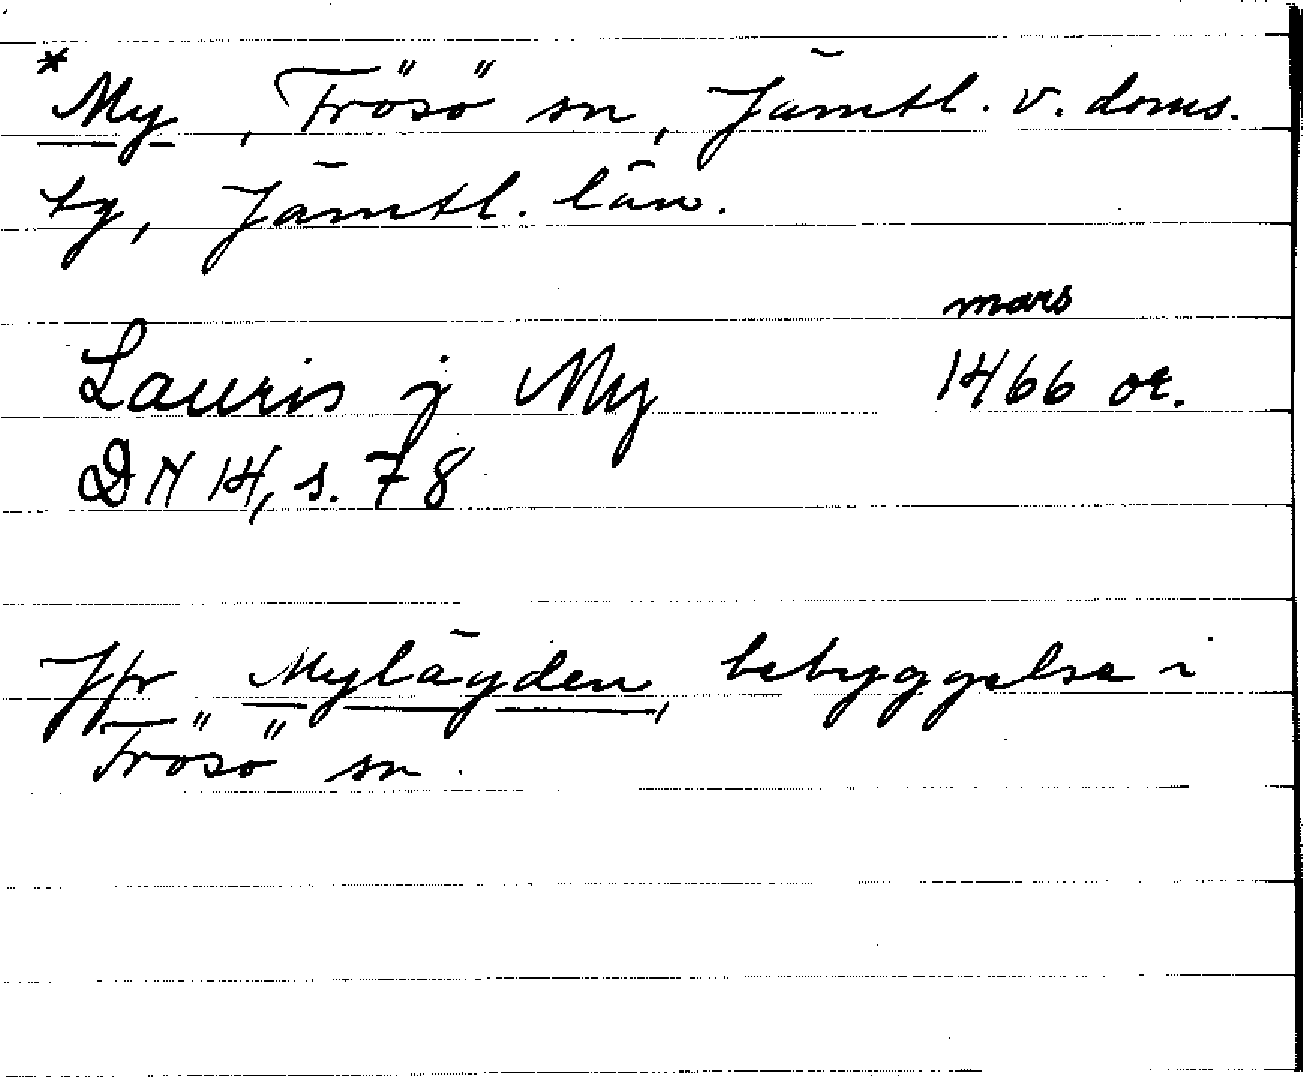 *My, Frösö sn, Jämtl. v. doms.
tg, Jämtl. län.
mars
Lauris j My 1466 or.
DN 14, s. 78
Jfr Mylägden, bebyggelse i
Frösö sn.